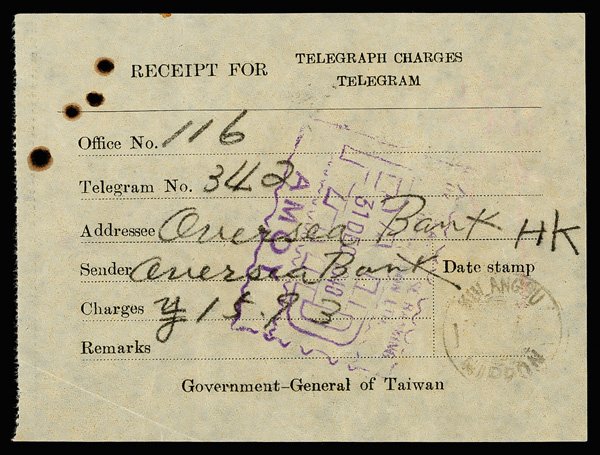 RECEIPT FOR TELEGRAPH CHARGES
TELEGRAM
Office No. 116
Telegram No. 342
Addressee Oversea Bank HK
Sender Oversea Bank Date stamp
Charges ¥ 15.93
Remarks
Government-General of Taiwan
AMOY
31 DEC
KULANGSU
NIPPON